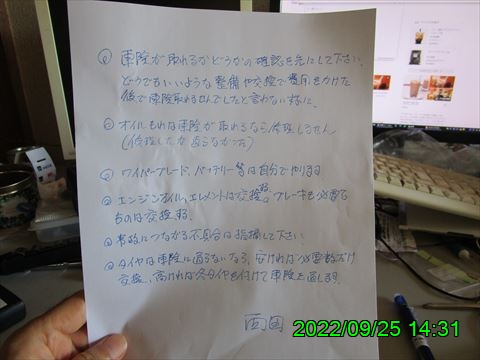 車検が取れるかどうかの確認を先にして下さい。
どうでもいいような整備や交換で費用をかけた
後で車検取れませんでしたと言わない様に。
オイルもれは車検が取れるなら修理しません
(修理したが直らなかった)
ワイパーブレード、バッテリー等は自分でやります
エンジンオイル、エレメントは交換する。ブレーキも必要な
ものは交換する。
事故につながる不具合は指摘して下さい
タイヤは車検に通らないなら、安ければ必要数だけ
交換、高ければ冬タイヤを付けて車検を通します。
西田
2022/09/25 14:31